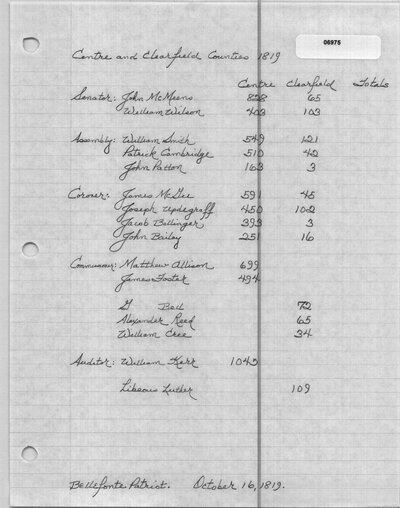 06975
Centre and Clearfield Counties 1819
Centre Clearfield Totals
Senator: John McMeens 828 65
William Wilson 403 103
Assembly: William Smith 549 121
Patrick Cambridge 510 42
John Patton 163 3
Coroner: James McGee 591 45
Joseph Updegraff 450 102
Jacob Bollinger 393 3
John Bailey 251 16
Commissioner: Matthew Allison 699
James Foster 494
G Bell 72
Alexander Reed 65
William Cree 34
Auditor: William Kerr 1045
Luther 109
Bellefonte Patriot. October 16, 1819.